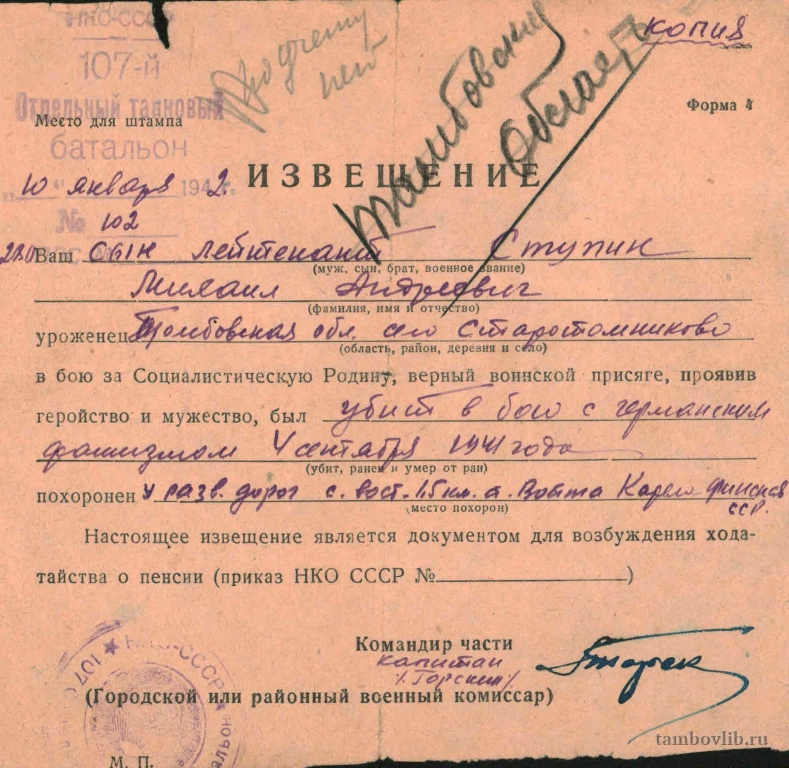 НКО-СССР
107-й
Отдельный танковый
батальон
копия
Место для штампа
Форма 4
Тамбовский
Облает
ИЗВЕЩЕНИЕ
„10“ января 1942 г.
№ 102
Ваш сын лейтенант Ступин
(муж, сын, брат, военное звание)
Михаил Андреевич
(фамилия, имя и отчество)
уроженец Тамбовская обл. село Старотомниково
(область, район, деревня и село)
в бою за Социалистическую Родину, верный воинской присяге, проявив
геройство и мужество, был убит в бою с германским
фашизмом 4 сентября 1941 года
(убит, ранен и умер от ран)
похоронен у разв. дорог с. вост. 1.5 км. д. Войта Карело финская
ССР.
(место похорон)
Настоящее извещение является документом для возбуждения хода-
тайства о пенсии (приказ НКО СССР № )
Командир части
капитан
/Горский/
(Городской или районный военный комиссар)
М. П.
НКО-СССР
107
tambovlib.ru